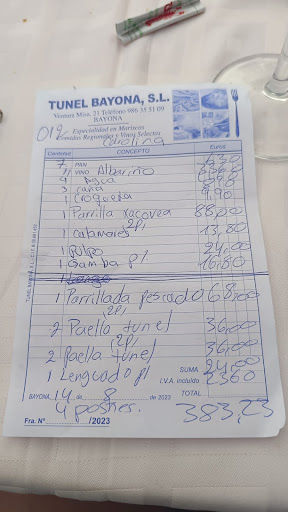 TUNEL BAYONA, S.L.
Ventura Misa, 21 Teléfono 986 35 51 09
BAYONA
Especialidad en Mariscos
Comidas Regionales y Vinos Selectos
019 Carolina
Cantidad CONCEPTO Euros
7 PAN 6,30
VINO Albariño
Agua
3 caña
1 Croqueta 9,90
1 Parrilla xacovea 88,00
2P/
1 Calamares 13,80
1 pulpo 24,00
1 Gamba pl 16,80
1 Parrillada pescado 68,00
2P/
2 Paella tunel 36,00
2P/
2 paella tunel 36,00
SUMA 24,00
1 Lenguado pl I.V.A. incluido 23,60
BAYONA, 14 de 8 de 2023 TOTAL
4 postres. 383,23
Fra. Nº /2023